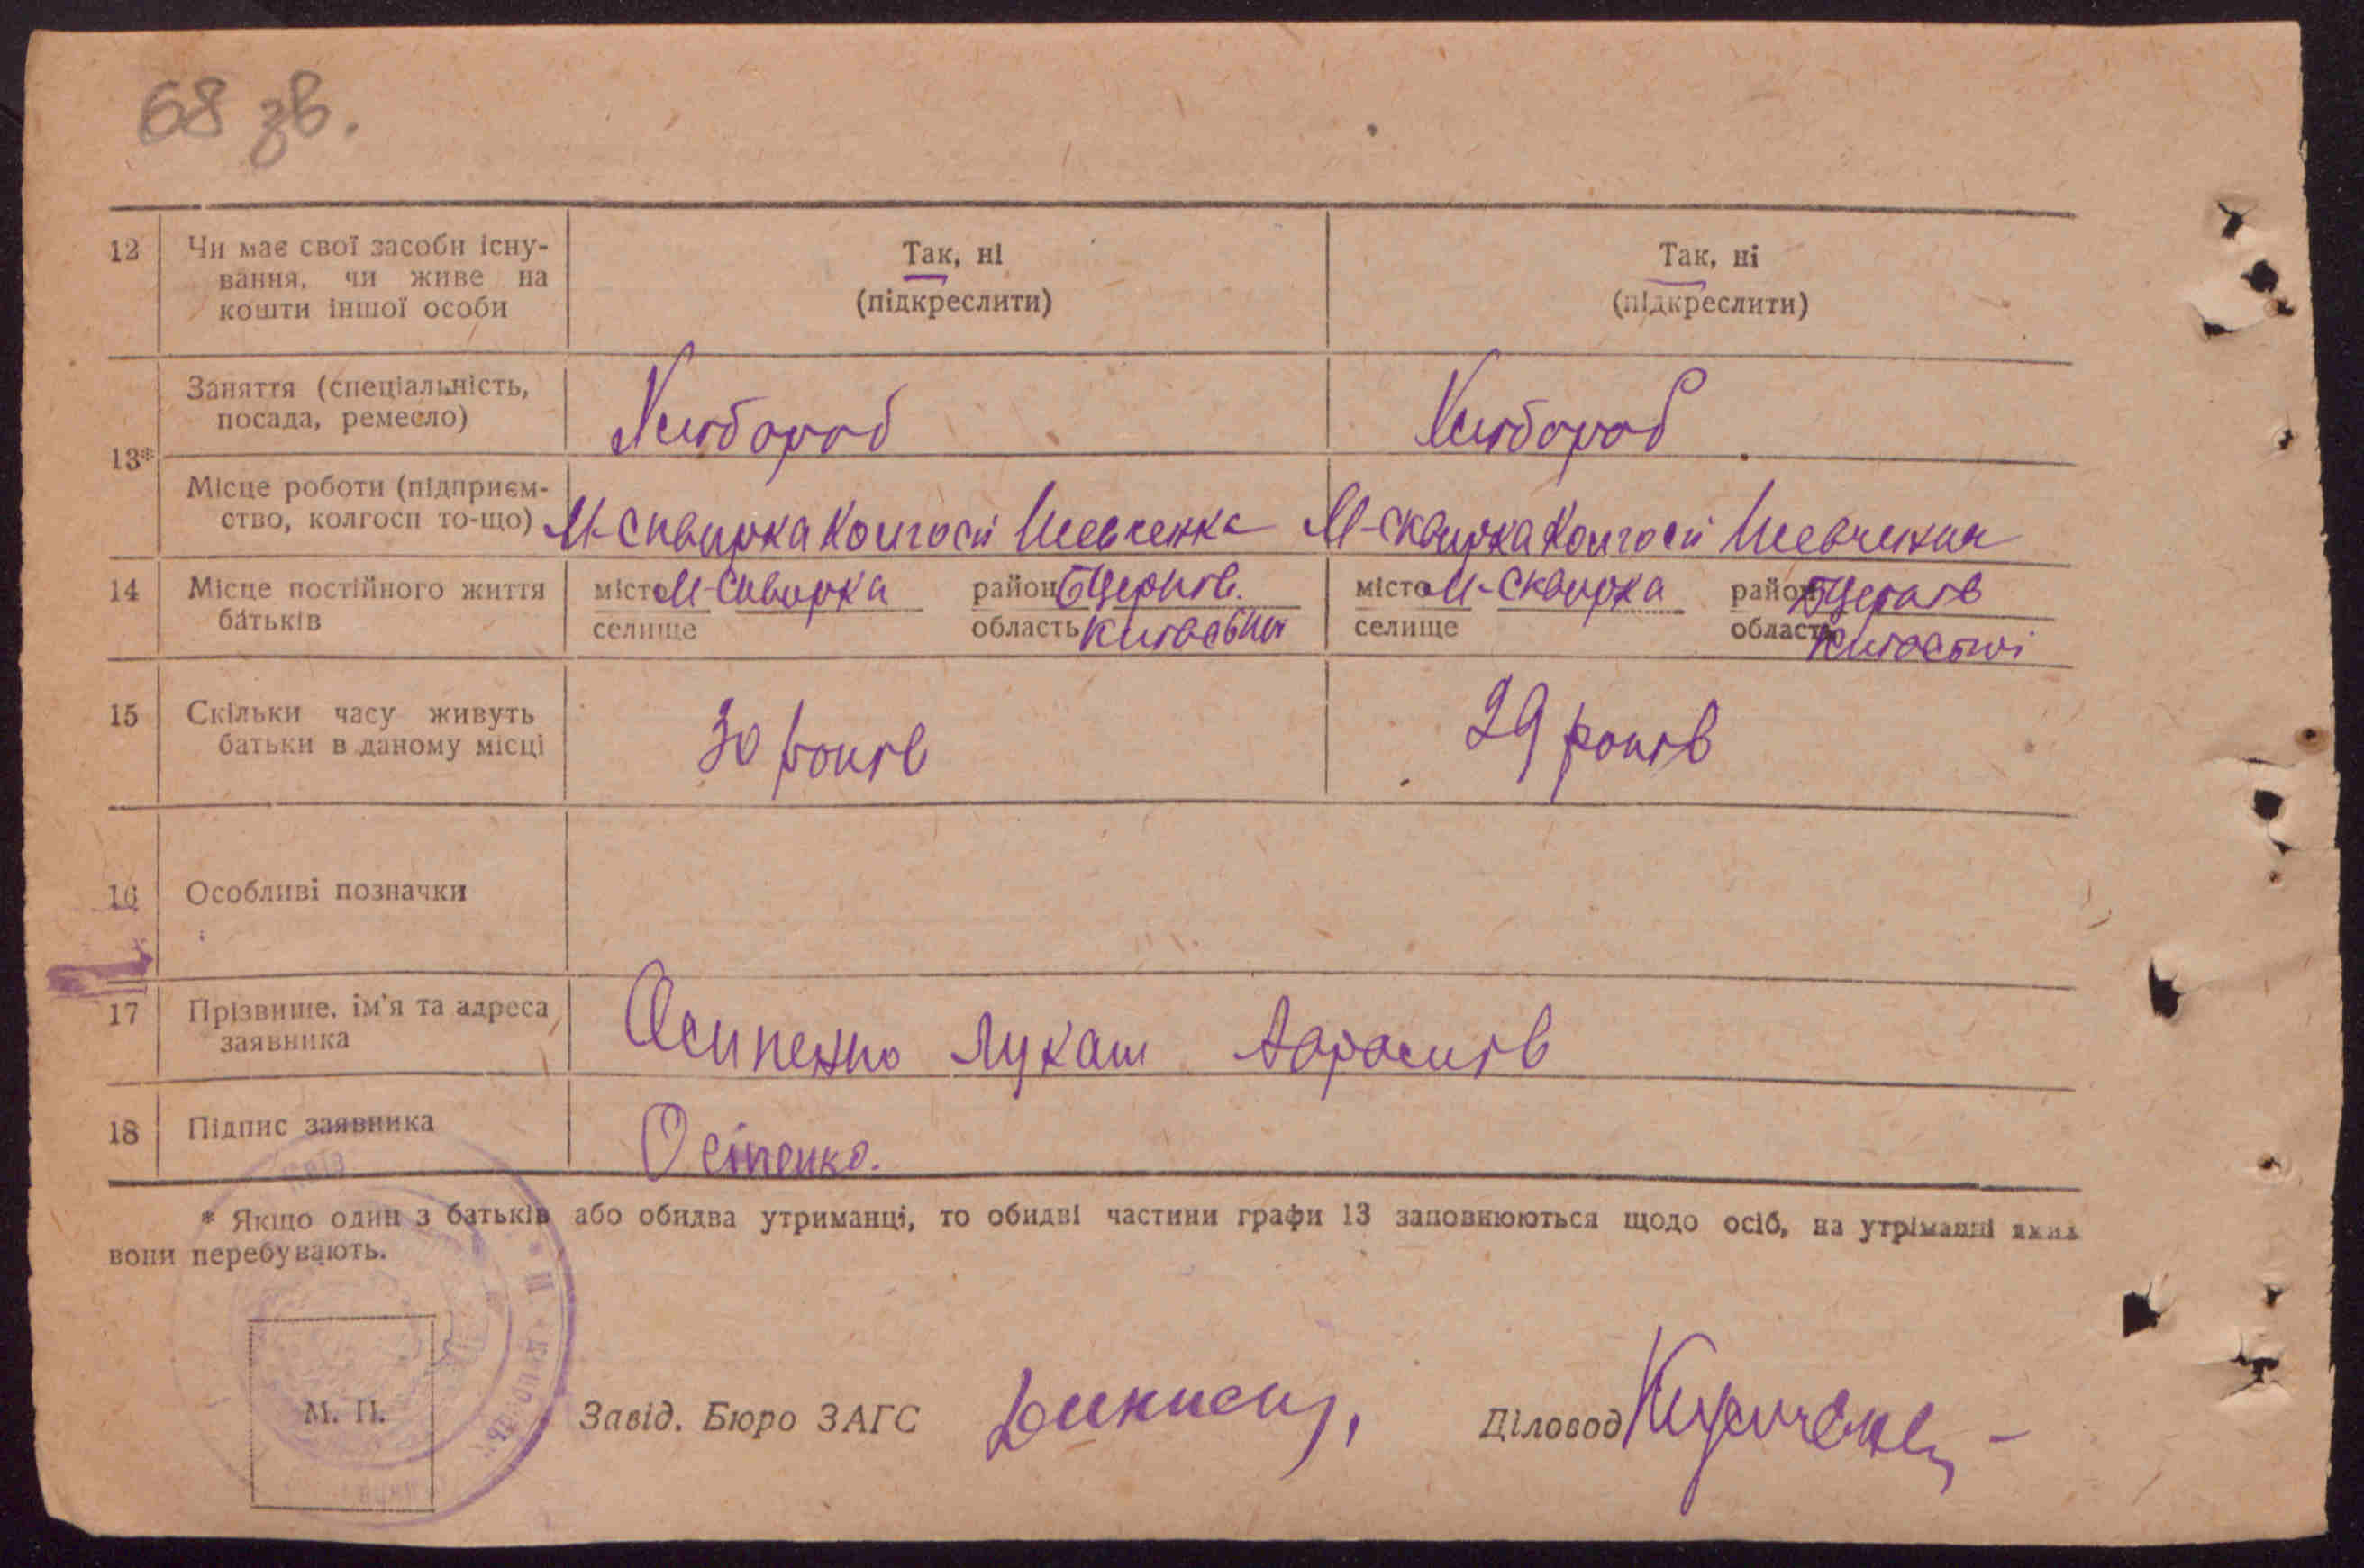 68 зв.
12 Чи має свої засоби існу- Так, ні Так, ні
вання, чи живе на (підкреслити) (підкреслити)
кошти іншої особи
Заняття (спеціальність, Хлібороб Хлібороб
посада, ремесло)
13*
Місце роботи (підприєм-
ство, колгосп то-що) М-Сквирка Колгосп Шевченка М-Сквирка Колгосп Шевченка
14 Місце постійного життя місто М-Сквирка район БЦерків. місто М-Сквирка район БЦерків
батьків селище область Київська селище область
15 Скільки часу живуть 30 років 29 років
батьки в даному місці
16 Особливі позначки
17 Прізвище, ім'я та адреса Осипенко Лукаш
заявника
18 Підпис заявника Осіпенко.
* Якщо один з батьків або обидва утриманці, то обидві частини графи 13 заповнюються щодо осіб, на утріманні яких
вони перебувають.
М. П. Завід. Бюро ЗАГС Діловод